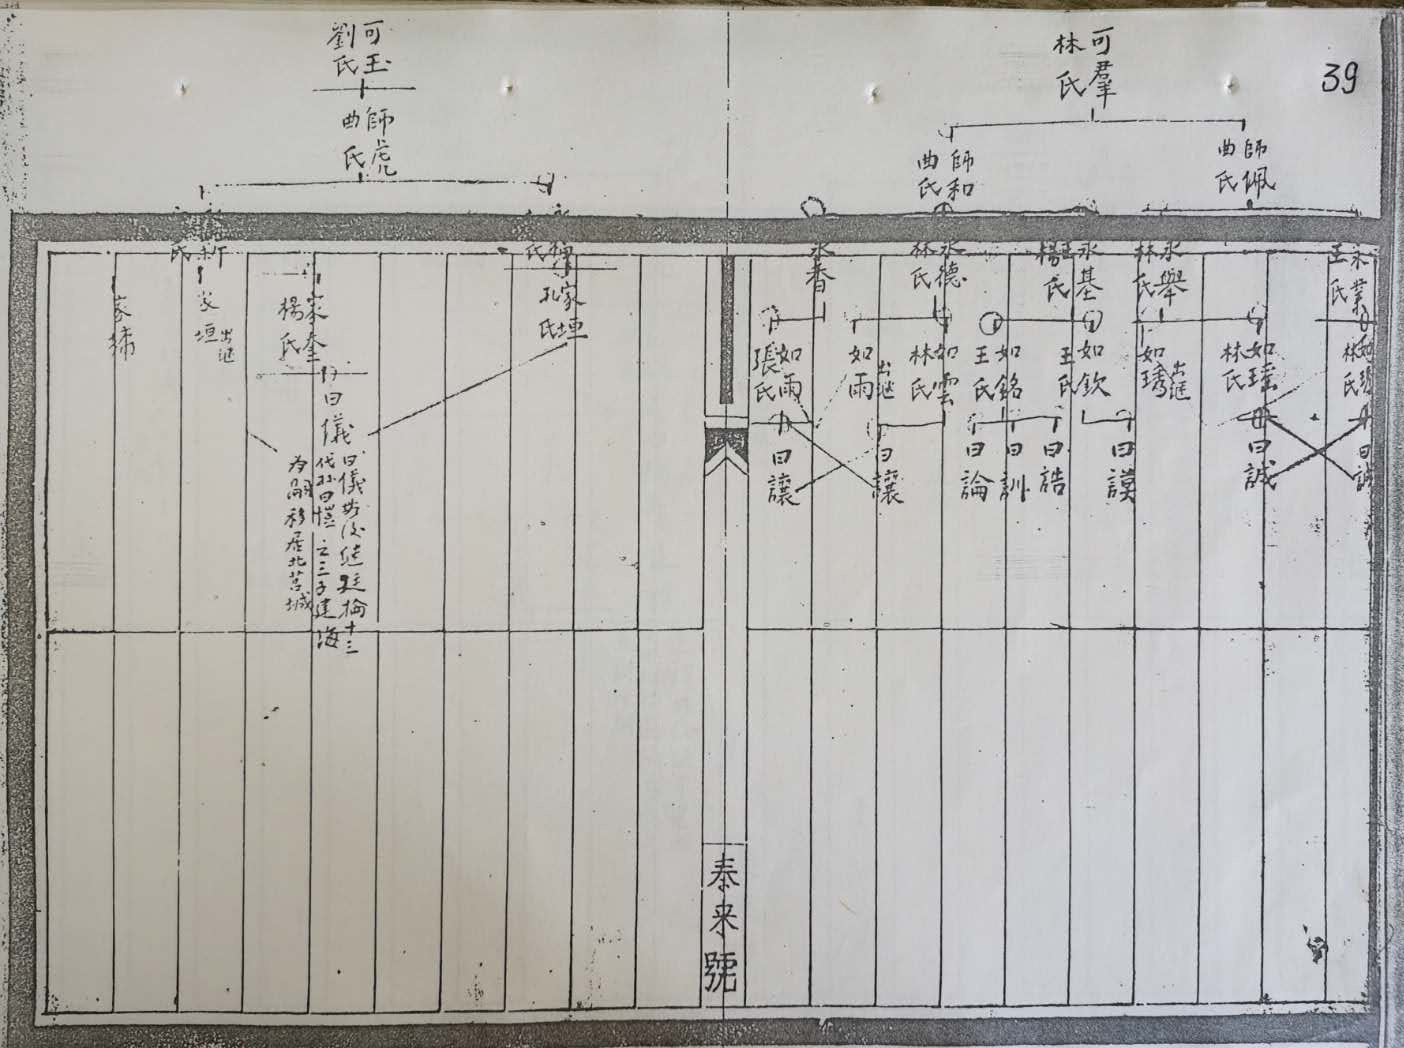 39
可羣
林氏
師佩
曲氏
師和
曲氏
永業
王氏
永舉
林氏
永基
楊氏
永德
林氏
永香
林氏
如璂
林氏
如琇
出继
如欽
王氏
如銘
王氏
如雲
林氏
如雨
出继
如雨
張氏
曰誠
曰誠
曰謨
曰誥
曰訓
曰論
曰讓
曰讓
泰来號
可玉
劉氏
師虎
曲氏
氏
氏
家垣
孔氏
家奎
楊氏
家垣
出继
家
曰儀
曰儀故後継廷榆十三
代孙曰愷之三子建海
为嗣移居北莒城